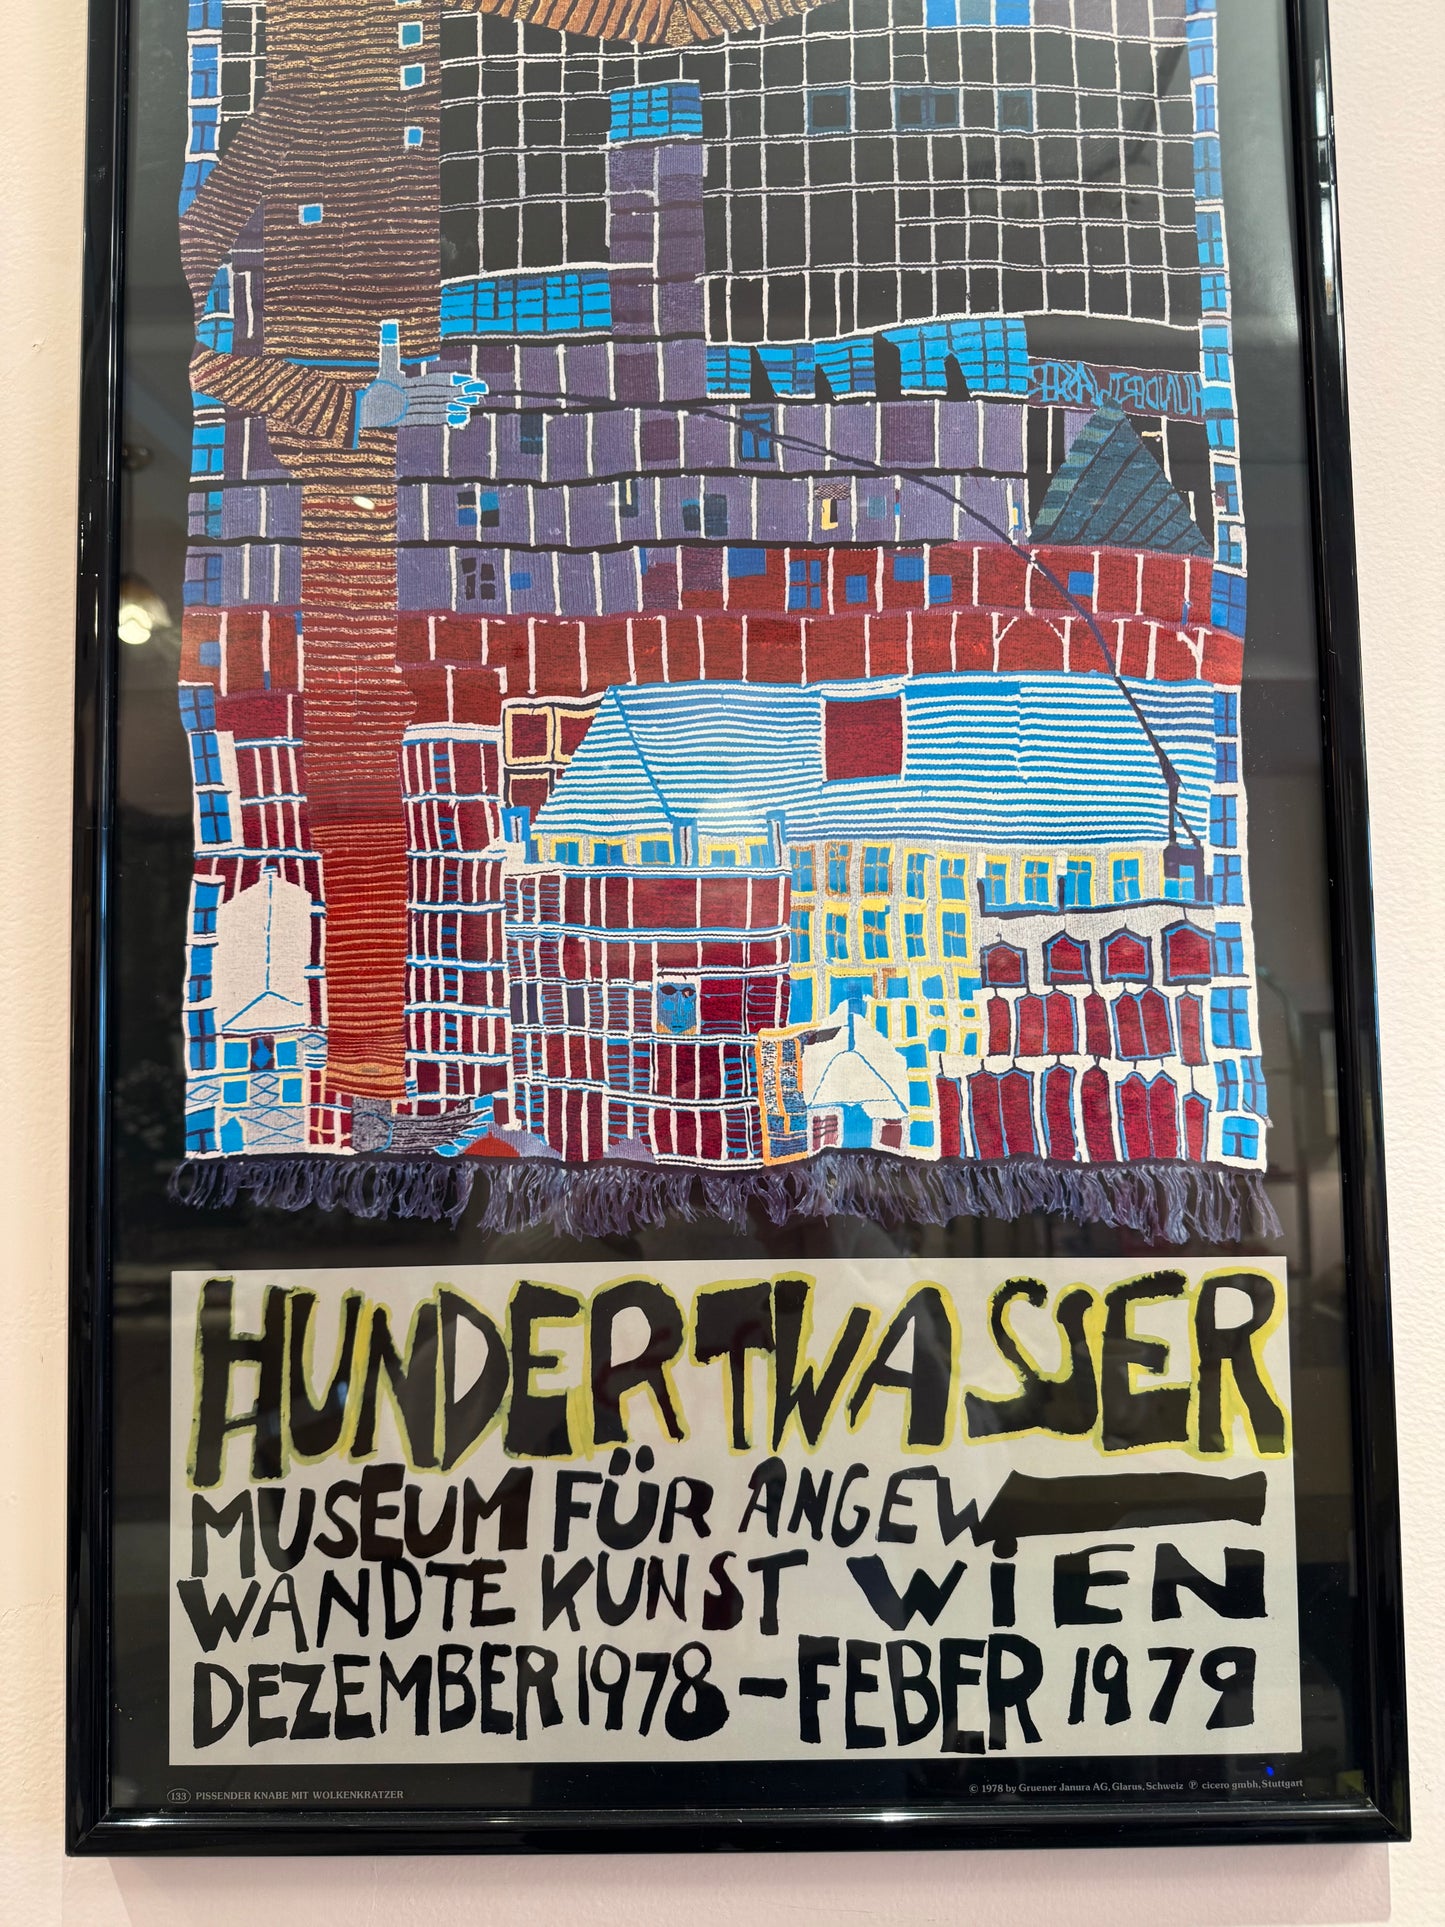 HUNDERTWASSER
HUNDERTWASSER
MUSEUM FÜR ANGEW
WANDTE KUNST WiEN
DEZEMBER 1978 – FEBER 1979
133 PISSENDER KNABE MIT WOLKENKRATZER
© 1978 by Gruener Janura AG, Glarus, Schweiz ℗ cicero gmbh, Stuttgart